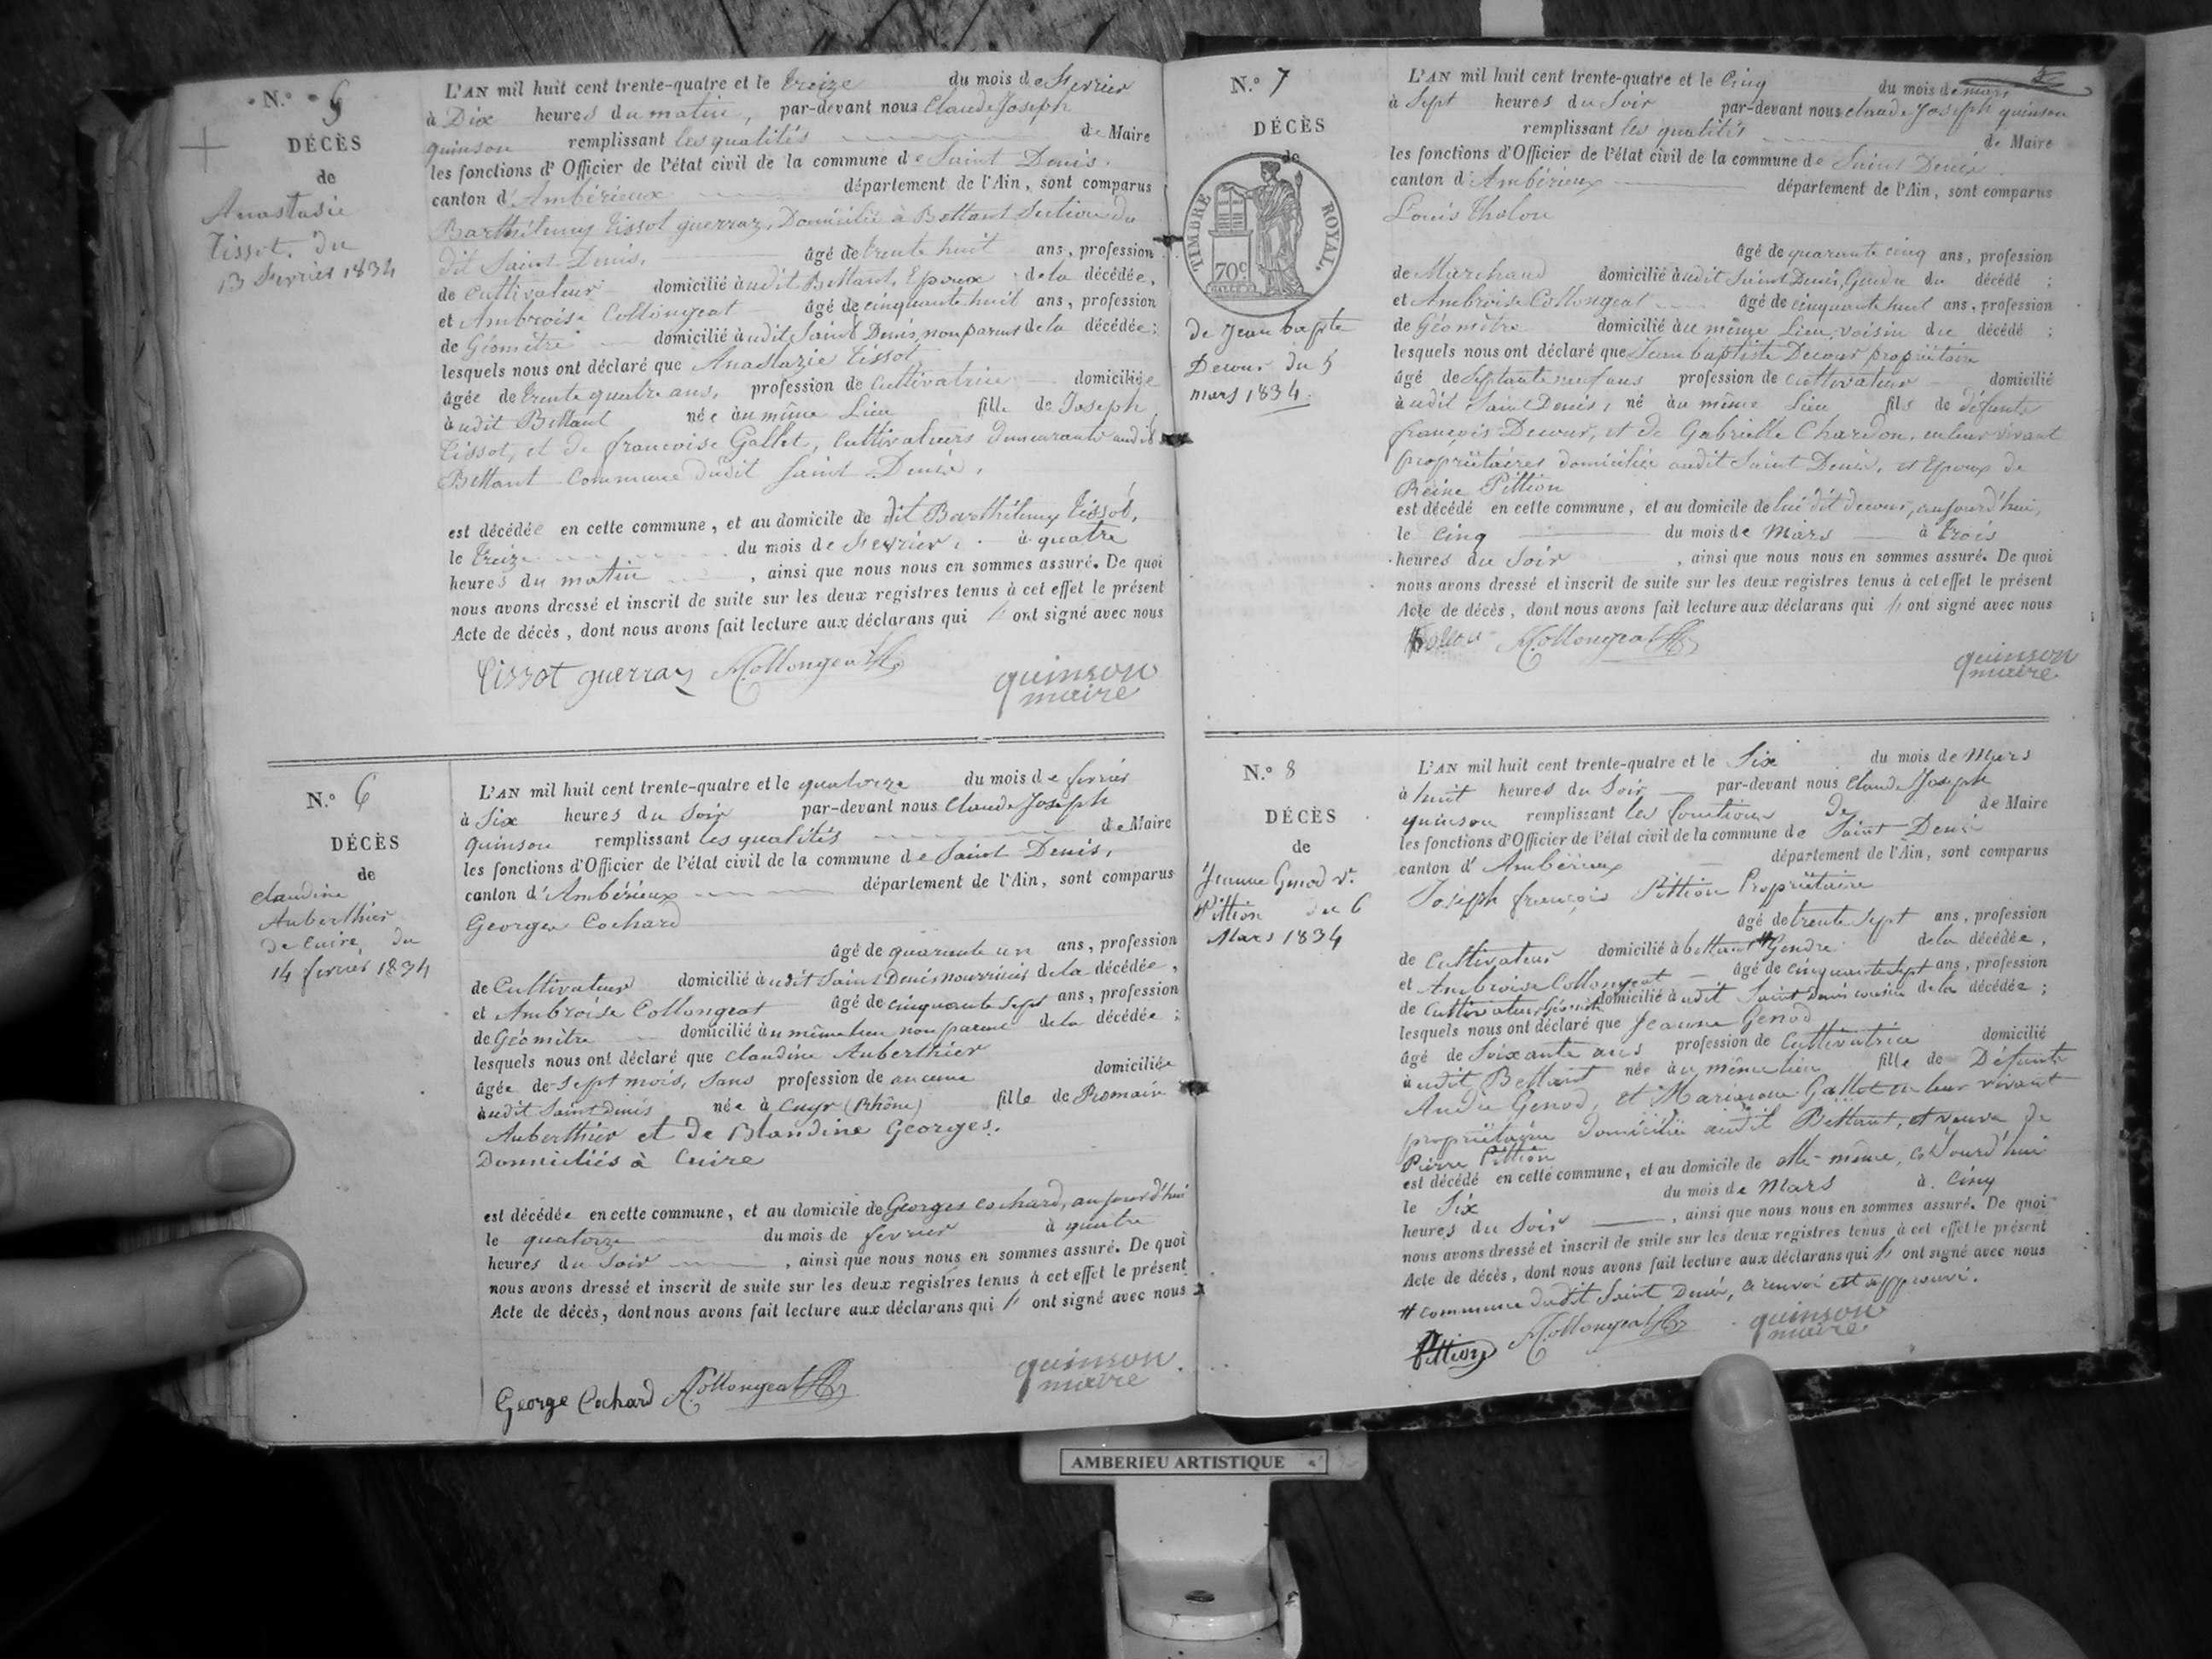 N.º 5
DÉCÈS
de
Anastasie
Tissot. du
13 Fevrier 1834
L'AN mil huit cent trente-quatre et le treize du mois de Fevrier
à Dix heures du matin, par-devant nous Claude Joseph
quinson remplissant les qualités de Maire
les fonctions d'Officier de l'état civil de la commune de Saint Denis.
canton d'Ambérieux département de l'Ain, sont comparus
Barthélemy Tissot guerraz, Domicilié à Bettant Section du
dit Saint Denis, âgé de trente huit ans, profession
de Cultivateur domicilié audit Bettant, Epoux de la décédée,
et Ambroise Collongeat âgé de cinquante huit ans, profession
de Géomètre domicilié audit Saint Denis, non parent de la décédée;
lesquels nous ont déclaré que Anastazie Tissot
âgée de trente quatre ans, profession de Cultivatrice domiciliée
audit Bettant née au même Lieu fille de Joseph
Tissot, et de francoise Gallet, Cultivateurs demeurants audit
Bettant Commune dudit Saint Denis,
est décédée en cette commune, et au domicile de dit Barthélemy Tissot,
le treize du mois de Fevrier, à quatre
heures du matin, ainsi que nous nous en sommes assuré. De quoi
nous avons dressé et inscrit de suite sur les deux registres tenus à cet effet le présent
Acte de décès, dont nous avons fait lecture aux déclarans qui ont signé avec nous
Tissot guerraz A. Collongeat quinson
maire
N.º 6
DÉCÈS
de
Claudine
Auberthier
de Cuire, du
14 fevrier 1834
L'AN mil huit cent trente-quatre et le quatorze du mois de fevrier
à Six heures du Soir par-devant nous Claude Joseph
quinson remplissant les qualités de Maire
les fonctions d'Officier de l'état civil de la commune de Saint Denis,
canton d'Ambérieux département de l'Ain, sont comparus
Georges Cochard
âgé de quarante un ans, profession
de Cultivateur domicilié audit Saint Denis nourricier de la décédée,
et Ambroise Collongeat âgé de cinquante Sept ans, profession
de Géomètre domicilié au même lieu non parent de la décédée;
lesquels nous ont déclaré que Claudine Auberthier
âgée de Sept mois, Sans profession de aucune domiciliée
audit Saint Denis née à Cuyr (Rhône) fille de Romain
Auberthier et de Blandine Georges.
Domiciliés à Cuire
est décédée en cette commune, et au domicile de Georges Cochard, aujourd'hui
le quatorze du mois de fevrier à quatre
heures du Soir, ainsi que nous nous en sommes assuré. De quoi
nous avons dressé et inscrit de suite sur les deux registres tenus à cet effet le présent
Acte de décès, dont nous avons fait lecture aux déclarans qui ont signé avec nous
George Cochard A. Collongeat quinson
maire
N.º 7
DÉCÈS
de
TIMBRE ROYAL.
70c
de Jean bapte
Decour du 5
mars 1834.
L'AN mil huit cent trente-quatre et le Cinq du mois de mars
à Sept heures du Soir par-devant nous claude Joseph quinson
remplissant les qualités de Maire
les fonctions d'Officier de l'état civil de la commune de Saint Denis
canton d'Ambérieux département de l'Ain, sont comparus
Louis Tholon
âgé de quarante cinq ans, profession
de Marchand domicilié audit Saint Denis, Gendre du décédé;
et Ambroise Collongeat âgé de cinquante huit ans, profession
de Géomètre domicilié au même Lieu, voisin du décédé;
lesquels nous ont déclaré que Jean baptiste Decour propriétaire
âgé de Septante neuf ans profession de Cultivateur domicilié
audit Saint Denis, né au même Lieu fils de défunts
françois Decour, et de Gabrielle Chardon, en leur vivant
propriétaires domiciliés audit Saint Denis, et Epoux de
Reine Pittion
est décédé en cette commune, et au domicile de lui dit decour, aujourd'hui,
le Cinq du mois de Mars à trois
heures du Soir, ainsi que nous nous en sommes assuré. De quoi
nous avons dressé et inscrit de suite sur les deux registres tenus à cet effet le présent
Acte de décès, dont nous avons fait lecture aux déclarans qui ont signé avec nous
A. Collongeat quinson
maire
N.º 8
DÉCÈS
de
Jeanne Genod ve.
Pittion du 6
Mars 1834
L'AN mil huit cent trente-quatre et le Six du mois de Mars
à huit heures du Soir par-devant nous Claude Joseph
quinson remplissant les fonctions de de Maire
les fonctions d'Officier de l'état civil de la commune de Saint Denis
canton d'Ambérieux département de l'Ain, sont comparus
Joseph françois Pittion Propriétaire
âgé de trente Sept ans, profession
de Cultivateur domicilié à bettant # Gendre de la décédée,
et Ambroise Collongeat âgé de cinquante Sept ans, profession
de Cultivateur Géomètre domicilié audit Saint Denis cousin de la décédée;
lesquels nous ont déclaré que Jeanne Genod
âgé de Soixante ans profession de Cultivatrice domicilié
audit Bettant née au même lieu fille de Défunts
André Genod, et Marianne Gallet en leur vivant
propriétaires domiciliés audit Bettant, et veuve de
Pierre Pittion
est décédé en cette commune, et au domicile de elle-même, cejourd'hui
le Six du mois de Mars à Cinq
heures du Soir, ainsi que nous nous en sommes assuré. De quoi
nous avons dressé et inscrit de suite sur les deux registres tenus à cet effet le présent
Acte de décès, dont nous avons fait lecture aux déclarans qui ont signé avec nous
# commune dudit Saint Denis, ce renvoi est approuvé.
Pittion A. Collongeat quinson
maire
AMBERIEU ARTISTIQUE